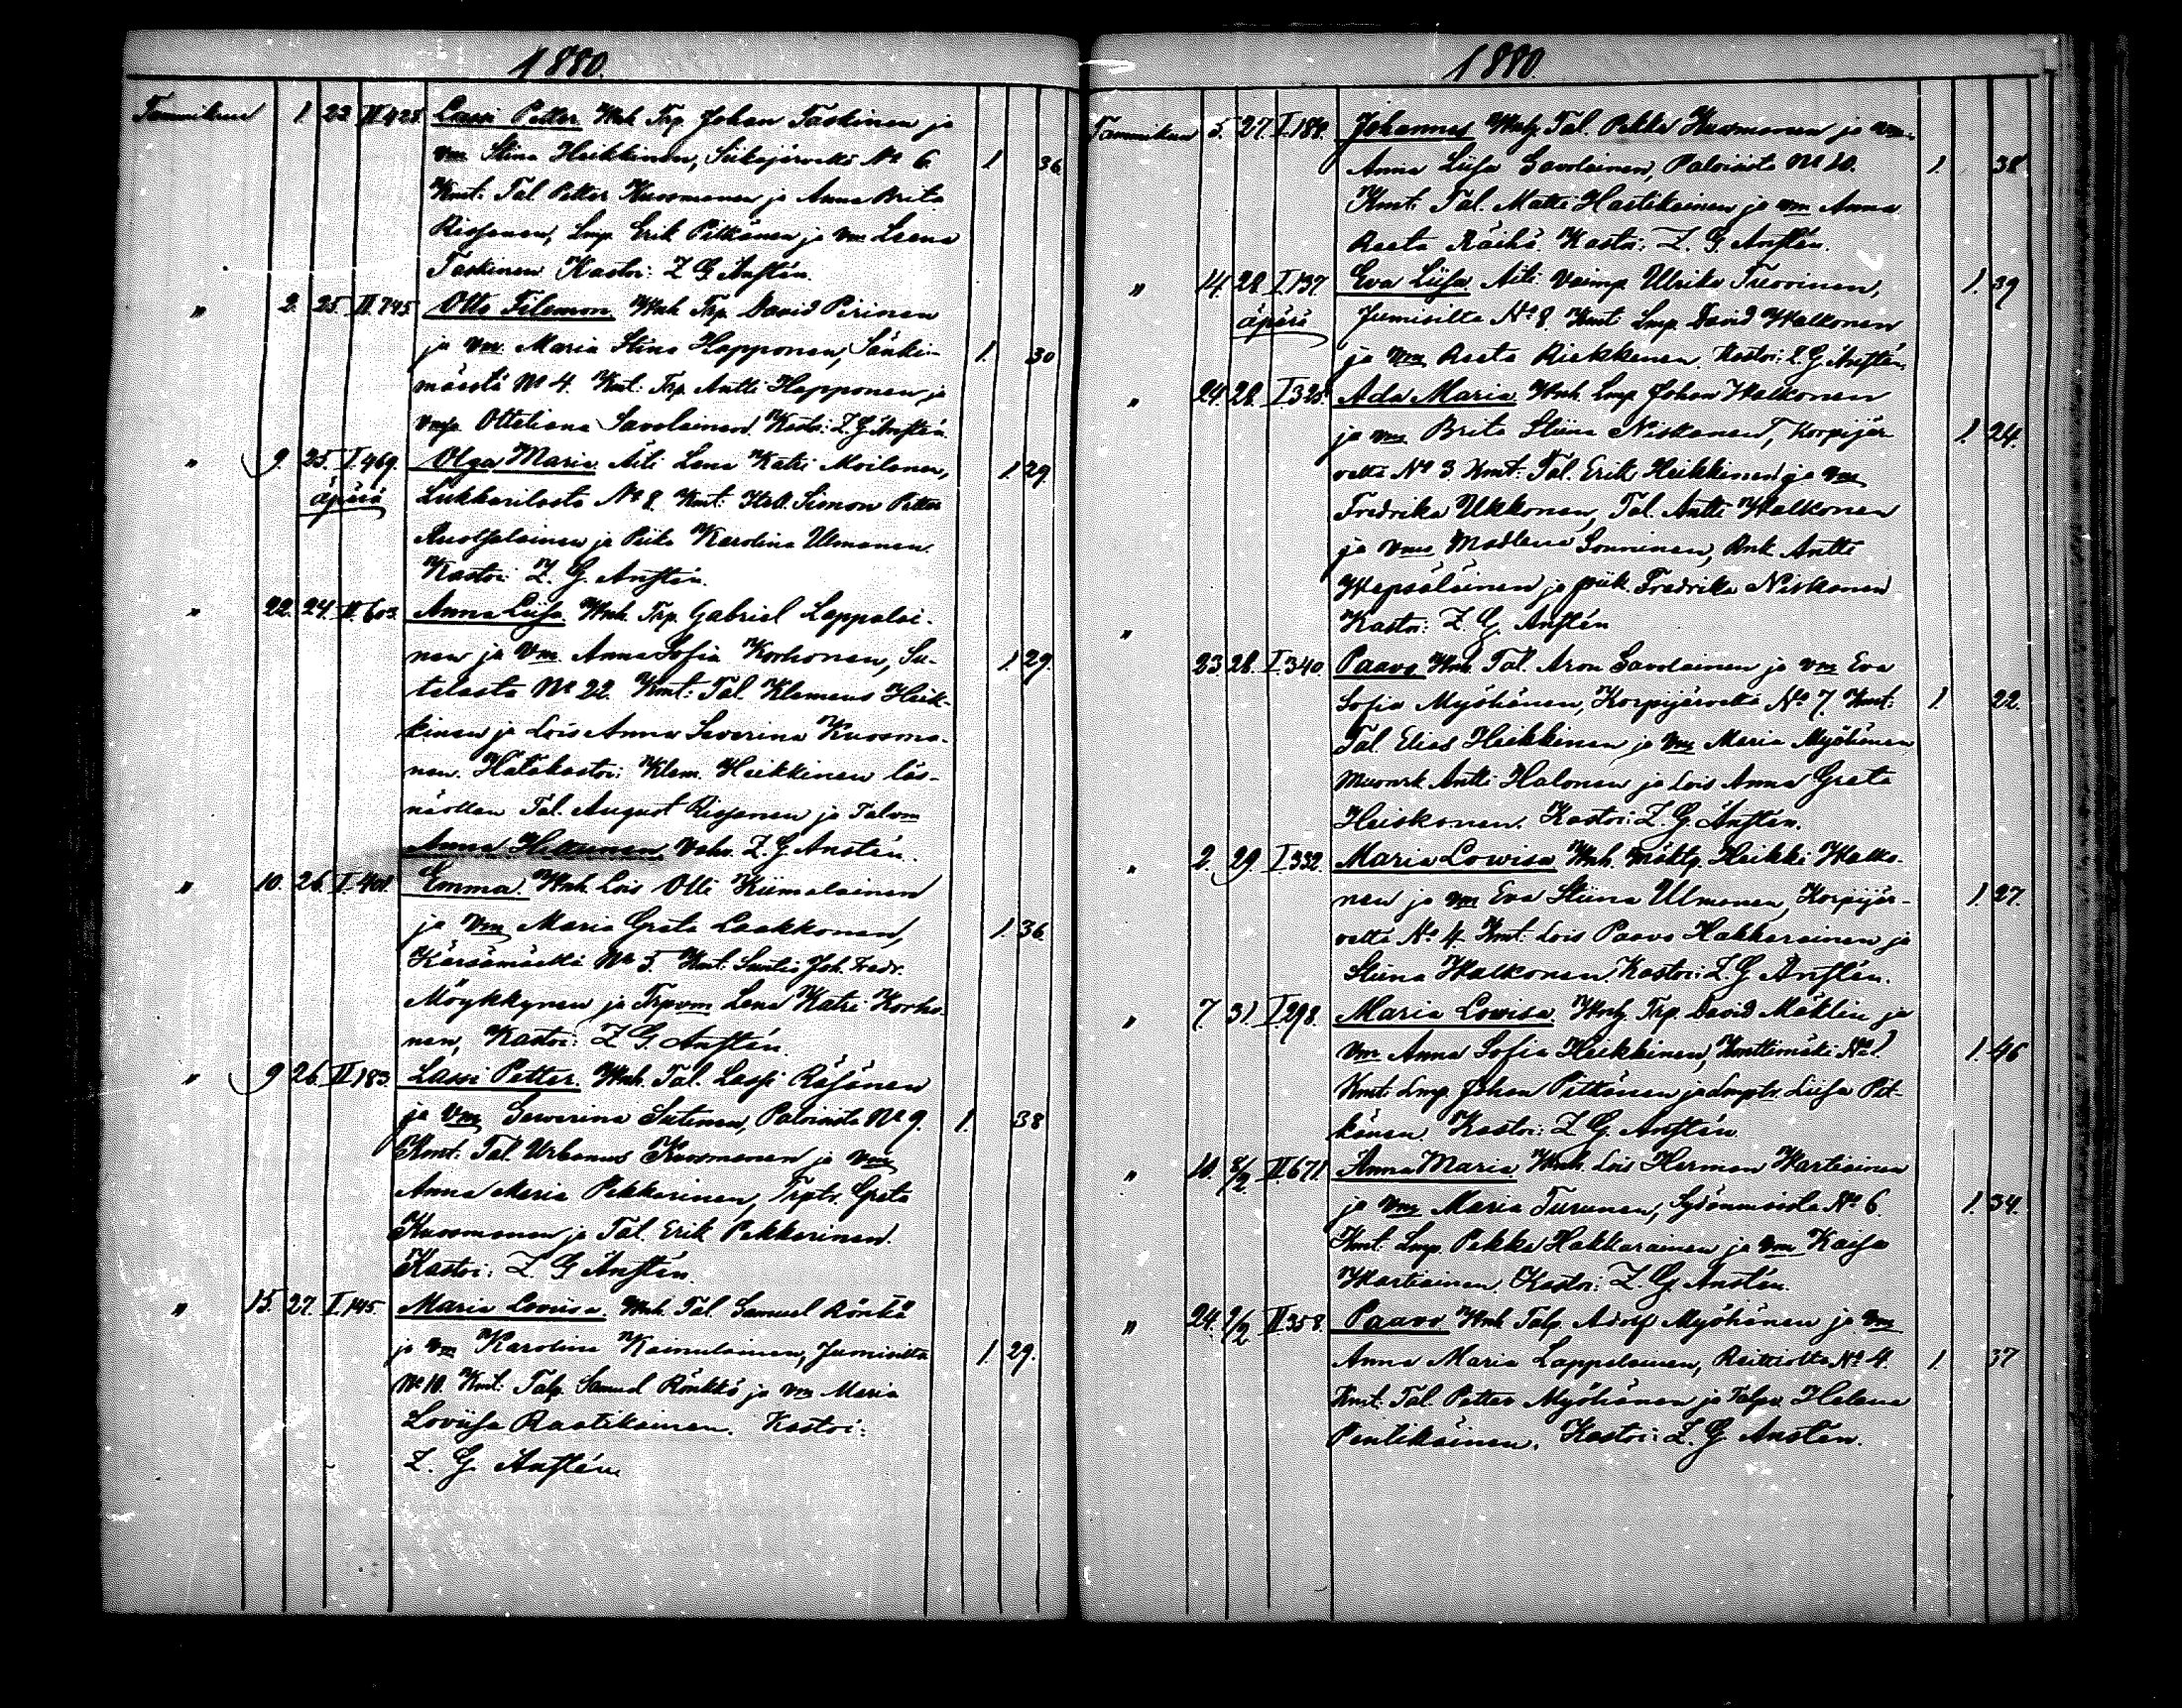 1880.
Tammikuu 1. 23. II 428. Lassi Petter. Wnh. Trp. Johan Taskinen ja
vm Stina Heikkinen, Siikajärveltä No 6. 1. 36.
Kmt: Tal. Petter Kuosmanen ja Anna Brita
Rissanen, Lmp. Erik Pitkänen ja vm Leena
Taskinen. Kastoi: Z. G. Anstén.
" 2. 25. II. 745. Otto Filemon. Wnh. Trp. David Piirinen
ja vm Maria Stina Happonen, Sänki- 1. 30
mäestä No 4. Kmt: Trp. Antti Happonen ja
vmsa Ottiliana Savolainen. Kastoi: Z. G. Anstén.
" 9. 25. I. 469. Olga Maria. Äiti Lena Katri Moilanen, 1. 29.
äpärä Lukkarilasta No 8. Kmt: Simon Petter
ja Piika Karolina Ulmanen.
Kastoi: Z. G. Anstén.
" 22. 24. II. 603. Anna Liisa. Wnh. Trp. Gabriel Lappalai-
nen ja vm Anna Sofia Korhonen, Su- 1. 29.
telasta No 22. Kmt: Tal. Klemens Heik-
kinen ja Lois Anna Severina Kuosma-
nen. Hätäkastoi: Klem. Heikkinen läs-
näollen Tal. August Rissanen ja Talvm
Anna Heikkinen. Vahv. Z. G. Anstén.
" 10. 26. I. 401. Emma. Wnh. Lois Olli Kiimalainen
ja vm Maria Greta Laakkonen, 1. 36.
Kärsämäeltä No 3. Kmt: Suntio Joh. Fredr.
Möykkynen ja Trpvm Lena Katri Korho-
nen. Kastoi: Z. G. Anstén.
" 9. 26. II. 183. Lassi Petter. Wnh. Tal. Lassi Räsänen
ja vm Sewerina Sutinen, Paloisista No 9. 1. 38
Kmt: Tal. Urbanus Kuosmanen ja vm
Anna Maria Pekkarinen, Trptr. Greta
Kuosmanen ja Tal. Erik Pekkarinen.
Kastoi: Z. G. Anstén.
" 15. 27. I. 145. Maria Loviisa. Wnh. Tal. Samuel Rönkä
ja vm Karolina Kainulainen, Jumisilta 1. 29.
No 10. Kmt: Talp. Samuel Rönkkö ja vm Maria
Loviisa Raatikainen. Kastoi:
Z. G. Anstén.
1880.
Tammikuu 5. 27. I. 184. Johannes. Wnh. Tal. Pekka Kuosmanen ja vm
Anna Liisa Savolainen, Paloisista No 10. 1. 38
Kmt: Tal. Matti Hartikainen ja vm Anna
Reeta Räihä. Kastoi: Z. G. Anstén.
" 14. 28. I. 137. Eva Liisa. Äiti: Vaimp. Ulrika 1. 39
äpärä Jumisilta No 8. Kmt: Lmp. David Walkonen
ja vm Reeta Riekkinen. Kastoi: Z. G. Anstén.
" 24. 28. I. 328. Ada Maria. Wnh. Lmp. Johan Walkonen
ja vm Brita Stiina Niskanen, Korpijär- 1. 24.
veltä No 3. Kmt: Tal. Erik Heikkinen ja vm
Fredrika Ukkonen, Tal. Antti Walkonen
ja vms Madlena Sonninen, Rnk. Antti
Wepsäläinen ja piik. Fredrika Niskanen
" Kastoi: Z. G. Anstén
23. 28. I. 340. Paavo. Wnh. Tal. Aron Savolainen ja vm Eva
Sofia Myöhänen, Korpijärveltä No 7. Kmt: 1. 22.
Tal. Elias Heikkinen ja vm Maria Myöhänen
Antti Halonen ja Lois Anna Greta
Heiskanen. Kastoi: Z. G. Anstén.
" 2. 29. I. 332. Maria Lowisa. Wnh. Mökltp. Heikki Walko-
nen ja vm Eva Stiina Ulmanen, Korpijär- 1. 27.
veltä No 4. Kmt: Lois Paavo Hakkarainen ja
Stiina Walkonen. Kastoi: Z. G. Anstén.
" 7. 31. I. 298. Maria Lowisa. Wnh. Trp. David Mäklin ja
vm Anna Sofia Heikkinen, Honttimäki No 1. 1. 46
Kmt: Lmp. Johan Pitkänen ja Lmptr. Liisa Pit-
känen. Kastoi: Z. G. Anstén.
" 10. 8/2 II. 671. Anna Maria. Wnh. Lois Herman Wartiainen
ja vm Maria Turunen, Sydänmaasta No 6. 1. 34.
Kmt: Lmp. Pekka Hakkarainen ja vm Kaisa
Wartiainen. Kastoi: Z. G. Anstén.
" 24. 9/2 II. 358. Paavo. Wnh. Talp. Adolf Myöhänen ja vm
Anna Maria Lappalainen, Reittiolta No 4. 1. 37
Kmt: Tal. Petter Myöhänen ja Talpv. Helena
Pentikäinen. Kastoi: Z. G. Anstén.